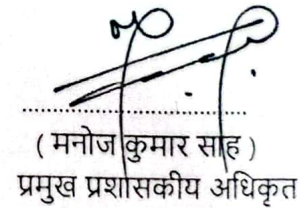 ( मनोज कुमार साह )
प्रमुख प्रशासकीय अधिकृत